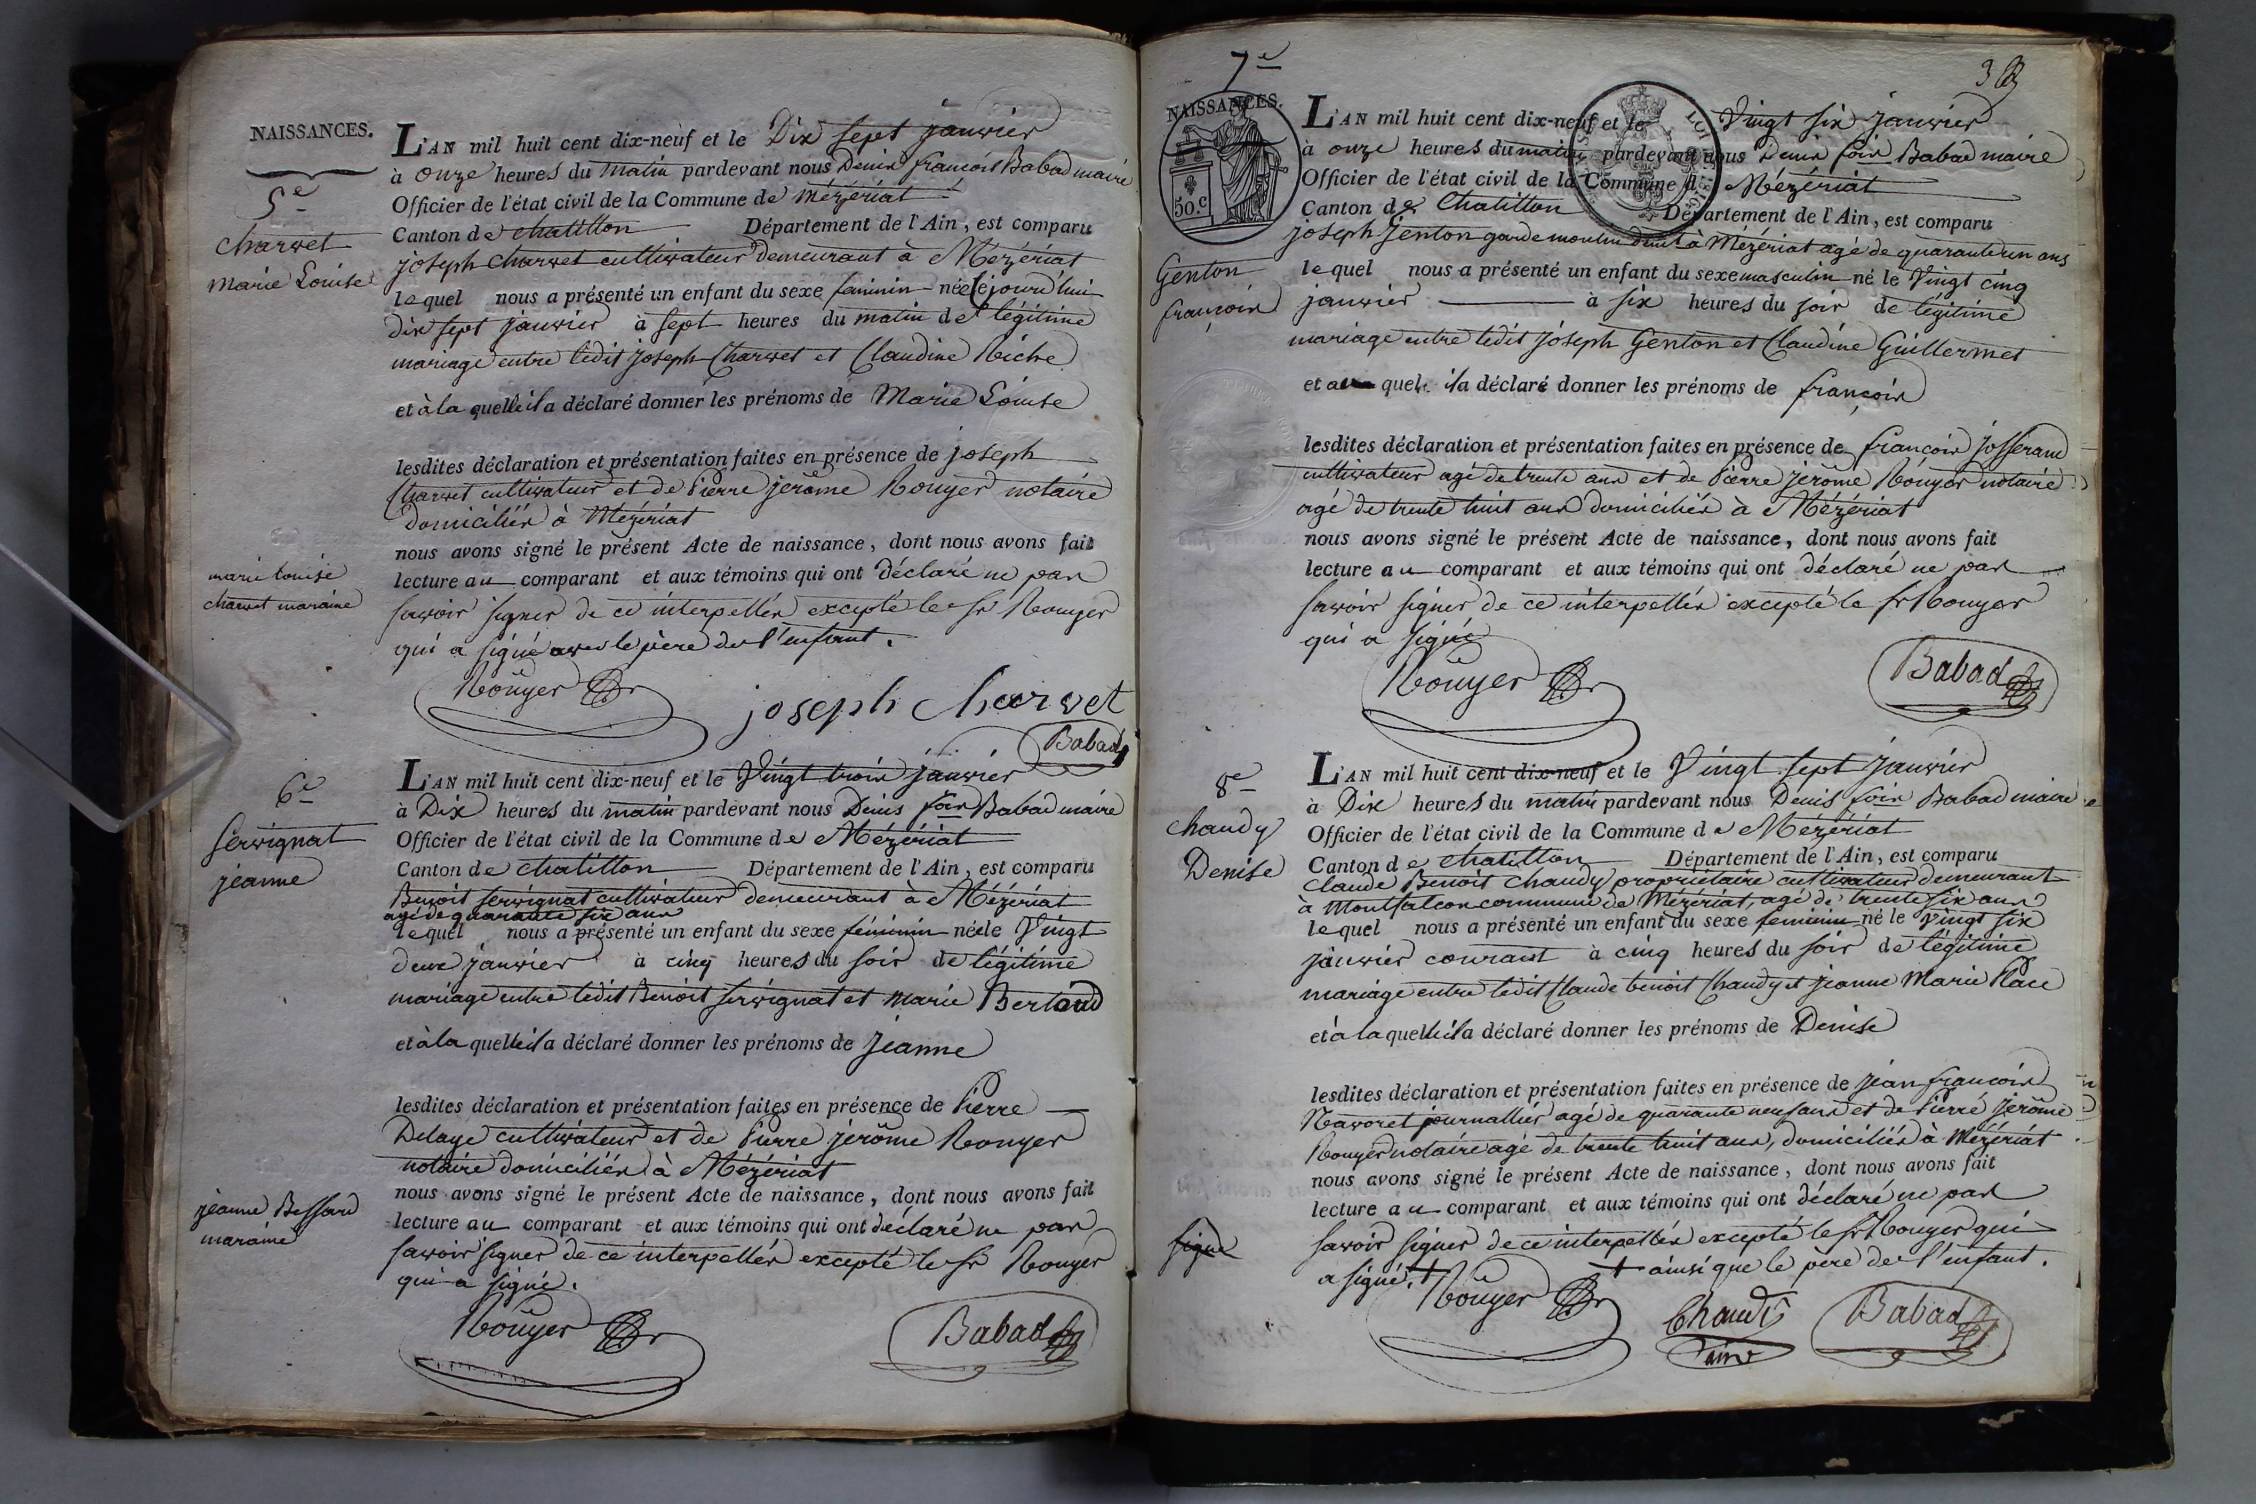 NAISSANCES.
5e
Charvet
Marie Louise
L'AN mil huit cent dix-neuf et le Dix sept janvier
à onze heures du matin pardevant nous Denis françois Babad maire
Officier de l'état civil de la Commune de Mézériat
Canton de chatillon Département de l'Ain, est comparu
joseph Charvet cultivateur demeurant à Mézériat
lequel nous a présenté un enfant du sexe féminin née cejourd'hui
dix sept janvier à sept heures du matin de légitime
mariage entre ledit joseph Charvet et Claudine Riche
et à la quelle il a déclaré donner les prénoms de Marie Louise
lesdites déclaration et présentation faites en présence de joseph
Charvet cultivateur et de Pierre jerôme Rouyer notaire
domiciliés à Mézériat
nous avons signé le présent Acte de naissance, dont nous avons fait
lecture au comparant et aux témoins qui ont déclaré ne pas
savoir signer de ce interpellés excepté le sr Rouyer
qui a signé avec le père de l'enfant.
marie louise
charvet maraine
Rouyer
joseph charvet
Babad
6e
Servignat
jeanne
L'AN mil huit cent dix-neuf et le Vingt trois janvier
à Dix heures du matin pardevant nous Denis fois Babad maire
Officier de l'état civil de la Commune de Mézériat
Canton de chatillon Département de l'Ain, est comparu
Benoit servignat cultivateur demeurant à Mézériat
agé de quarante six ans
lequel nous a présenté un enfant du sexe féminin née le Vingt
deux janvier à cinq heures du soir de légitime
mariage entre ledit Benoit servignat et marie Berland
et à la quelle il a déclaré donner les prénoms de jeanne
lesdites déclaration et présentation faites en présence de Pierre
Delaye cultivateur et de Pierre jerôme Rouyer
notaire domiciliés à Mézériat
nous avons signé le présent Acte de naissance, dont nous avons fait
lecture au comparant et aux témoins qui ont déclaré ne pas
savoir signer de ce interpellés excepté le sr Rouyer
qui a signé.
jeanne Bessard
maraine
Rouyer
Babad
7e
3
NAISSANCES.
50.c
Genton
françois
L'AN mil huit cent dix-neuf et le Vingt six janvier
à onze heures du matin pardevant nous Denis fois Babad maire
Officier de l'état civil de la Commune de Mézériat
Canton de Chatillon Département de l'Ain, est comparu
joseph Genton garde moulin demt à Mézériat agé de quarante un ans
lequel nous a présenté un enfant du sexe masculin né le Vingt cinq
janvier à six heures du soir de légitime
mariage entre ledit joseph Genton et Claudine Guillermet
et au quel il a déclaré donner les prénoms de françois
lesdites déclaration et présentation faites en présence de françois josserand
cultivateur agé de trente ans et de Pierre jerôme Rouyer notaire
agé de trente huit ans domiciliés à Mézériat
nous avons signé le présent Acte de naissance, dont nous avons fait
lecture au comparant et aux témoins qui ont déclaré ne pas
savoir signer de ce interpellés excepté le sr Rouyer
qui a signé
Rouyer
Babad
8e
chaudy
Denise
L'AN mil huit cent dix-neuf et le Vingt sept janvier
à Dix heures du matin pardevant nous Denis fois Babad maire
Officier de l'état civil de la Commune de Mézériat
Canton de chatillon Département de l'Ain, est comparu
claude Benoit chaudy propriétaire cultivateur demeurant
à Montfalcon commune de Mézériat, agé de trente six ans
lequel nous a présenté un enfant du sexe feminin né le Vingt six
janvier courant à cinq heures du soir de légitime
mariage entre ledit Claude benoit Chaudy et jeanne Marie Place
et à la quelle il a déclaré donner les prénoms de Denise
lesdites déclaration et présentation faites en présence de jean françois
Navoret journallier agé de quarante neuf ans et de Pierre jerôme
Rouyer notaire agé de trente huit ans, domiciliés à Mézériat
nous avons signé le présent Acte de naissance, dont nous avons fait
lecture au comparant et aux témoins qui ont déclaré ne pas
savoir signer de ce interpellés excepté le sr Rouyer qui
a signé. + + ainsi que le père de l'enfant.
signé
Rouyer
Chaudy
ainé
Babad